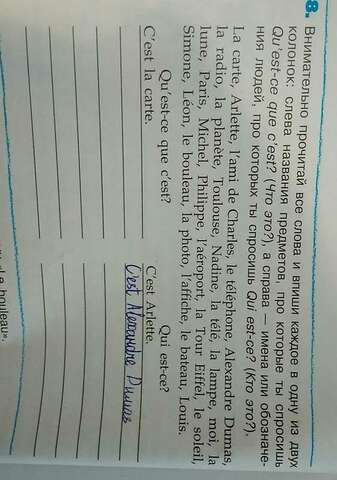 8. Внимательно прочитай все слова и впиши каждое в одну из двух
колонок: слева названия предметов, про которые ты спросишь
Qu'est-ce que c'est? (Что это?), а справа — имена или обозначе-
ния людей, про которых ты спросишь Qui est-ce? (Кто это?).
La carte, Arlette, l'ami de Charles, le téléphone, Alexandre Dumas,
la radio, la planète, Toulouse, Nadine, la télé, la lampe, moi, la
lune, Paris, Michel, Philippe, l'aéroport, la Tour Eiffel, le soleil,
Simone, Léon, le bouleau, la photo, l'affiche, le bateau, Louis.
Qu'est-ce que c'est? Qui est-ce?
C'est la carte. C'est Arlette.
C'est Alexandre Dumas
bouleau».